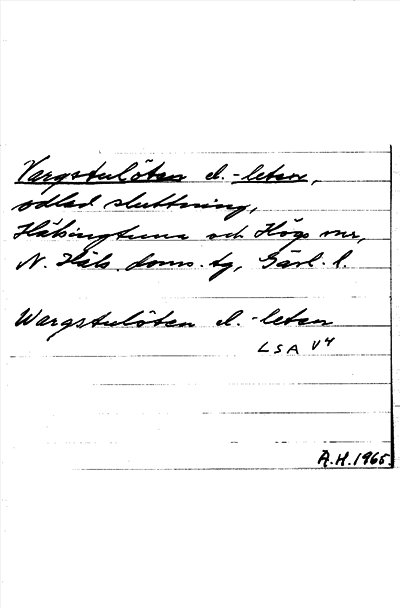 Vargstulöten el. -leten,
odlad sluttning,
Hälsingtuna och Högs snr,
N. Häls. doms. tg, Gävl. l.
Wargstulöten el. -leten
LSA V4
A.H. 1965.